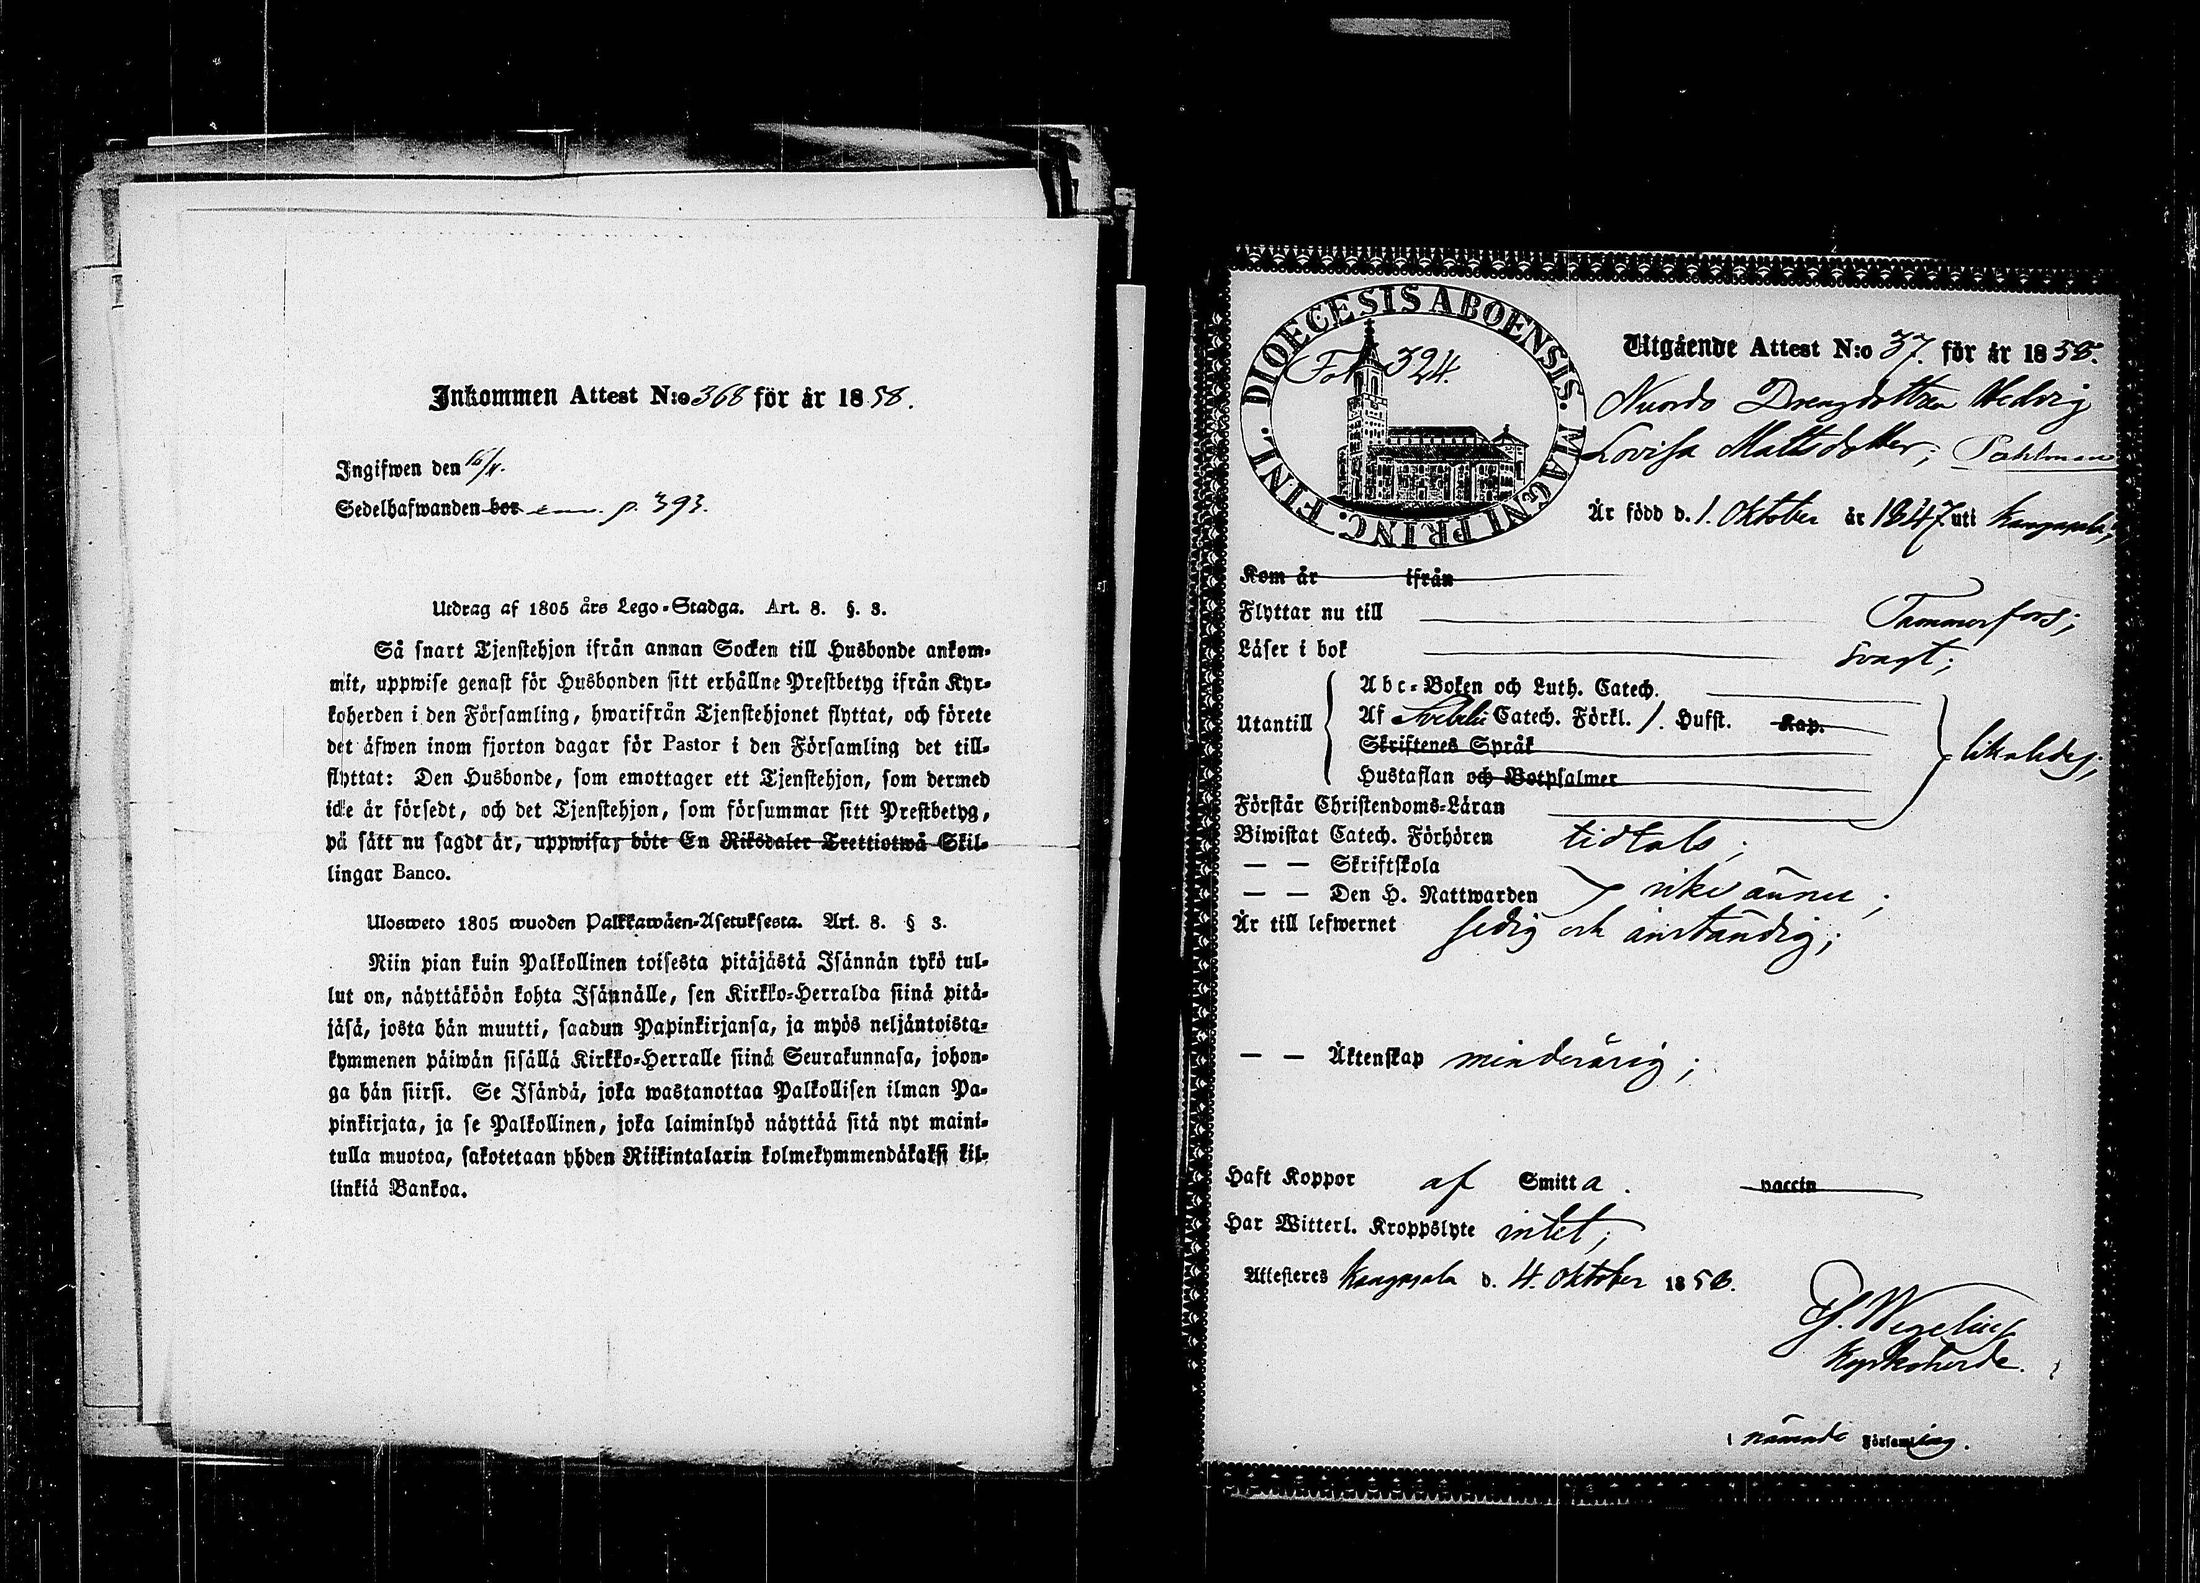 Inkommen Attest N:o 368 för år 1858.
Ingifwen den 16/11.
Sedelhafwanden bor p. 393.
Utdrag af 1805 års Lego-Stadga. Art. 8. §. 3.
Så snart Tjenstehjon ifrån annan Socken till Husbonde ankom-
mit, uppwise genast för Husbonden sitt erhållne Prestbetyg ifrån Kyr-
koherden i den Församling, hwarifrån Tjenstehjonet flyttat, och förete
det äfwen inom fjorton dagar för Pastor i den Församling det till-
flyttat: Den Husbonde, som emottager ett Tjenstehjon, som dermed
icke är försedt, och det Tjenstehjon, som försummar sitt Prestbetyg,
på sätt nu sagdt är, uppwisa, böte En Riksdaler Trettiotwå Skil-
lingar Banco.
Ulosweto 1805 wuoden Palkkawäen-Asetuksesta. Art. 8. § 3.
Niin pian kuin Palkollinen toisesta pitäjästä Isännän tykö tul-
lut on, näyttäköön kohta Isännälle, sen Kirkko-Herralda siinä pitä-
jäsä, josta hän muutti, saadun Papinkirjansa, ja myös neljäntoista-
kymmenen päiwän sisällä Kirkko-Herralle siinä Seurakunnasa, johon-
ga hän siirsi. Se Isändä, joka wastanottaa Palkollisen ilman Pa-
pinkirjata, ja se Palkollinen, joka laiminlyö näyttää sitä nyt maini-
tulla muotoa, sakotetaan yhden Riikintalarin kolmekymmendäkaksi kil-
linkiä Bankoa.
DIOECESIS ABOENSIS. MAGNI PRINC. FINL.
Fol 324.
Utgående Attest N:o 37. för år 1858.
Drengdottren Hedvig
Lovisa Mattsdotter; Pahlman
Är född d. 1. Oktober år 1847 uti Kangasala;
Kom år ifrån
Flyttar nu till Tammerfors;
Läser i bok svagt;
Utantill
Abc-Boken och Luth. Catech.
Af Svebelii Catech. Förkl. 1. Hufst. Kap.
Skriftenes Språk
Hustaflan och Botpsalmer
likaledes;
Förstår Christendoms-Läran
Biwistat Catech. Förhören tidtals;
— — Skriftskola
— — Den H. Nattwarden icke ännu;
Är till lefwernet sedig och anständig;
— — Äktenskap minderårig;
Haft Koppor af Smitta. vaccin
Har Witterl. Kroppslyte intet;
Attesteres Kangasala d. 4. Oktober 1858.
Wegelius
Kyrkoherde.
i nämnde Församling.